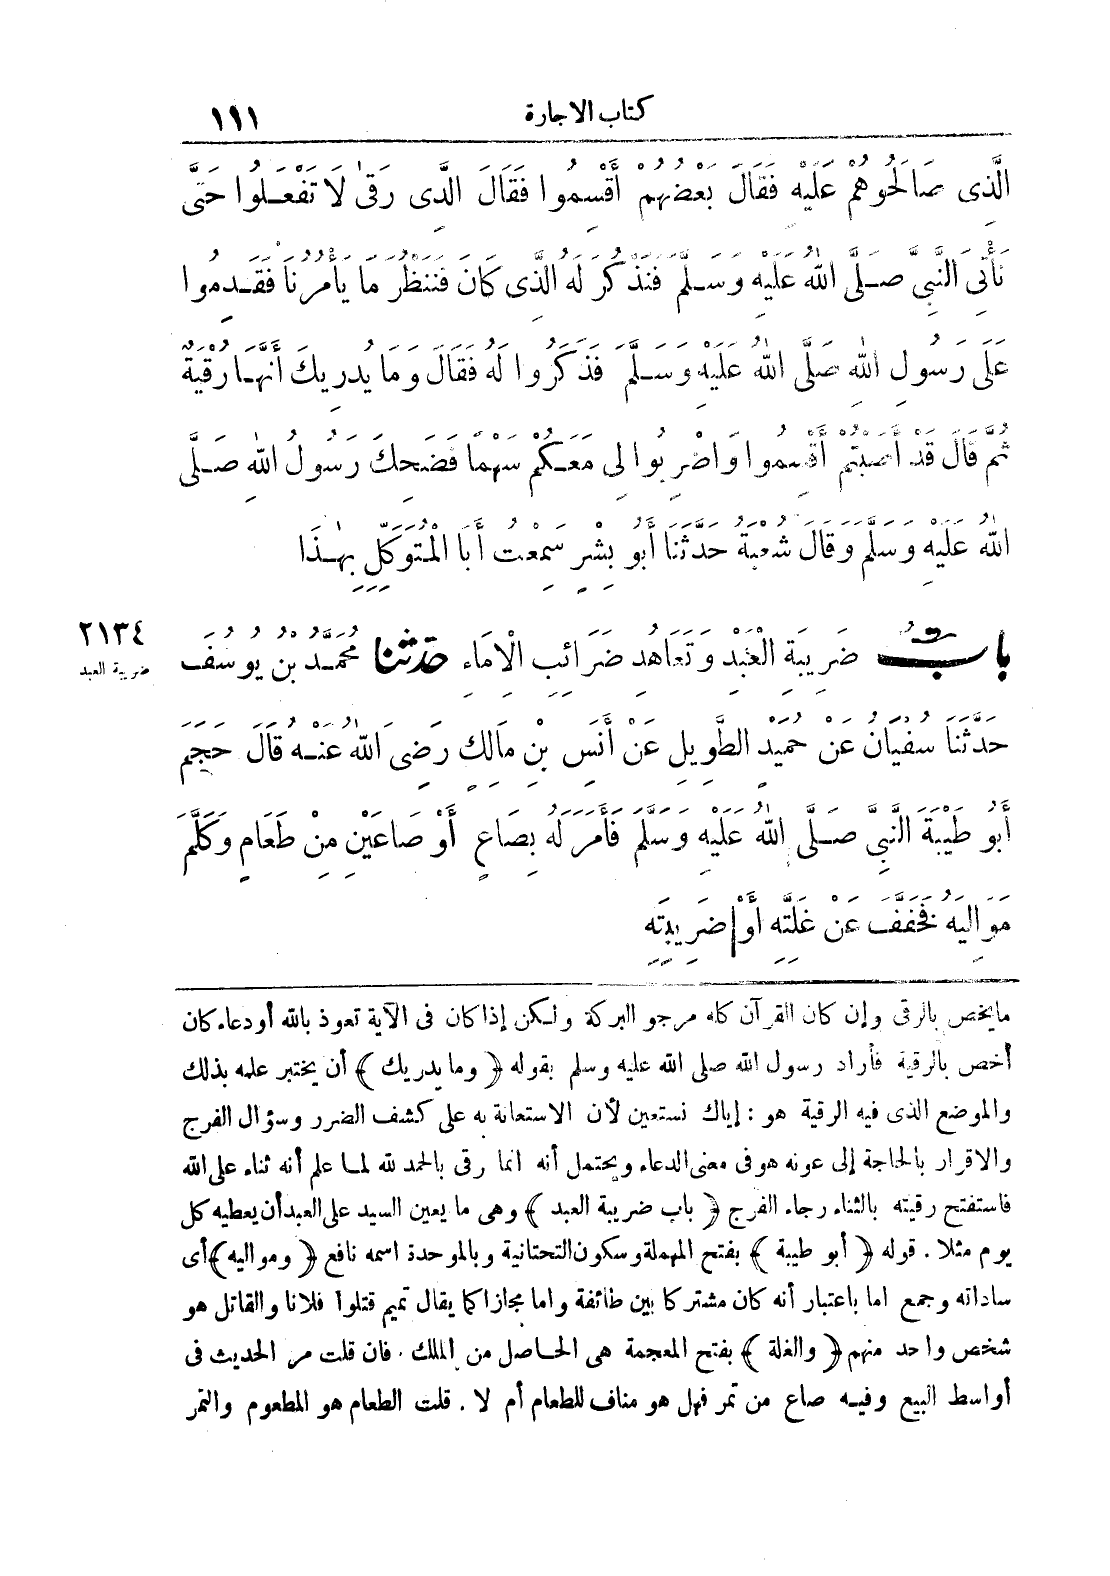 كتاب الاجارة
١١١
الَّذِى صَالَحُوهُمْ عَلَيْهِ فَقَالَ بَعْضُهُمْ أَقْسِمُوا فَقَالَ الَّذِى رَقَىٰ لَا تَفْعَلُوا حَتَّى
نَأْتِىَ النَّبِىَّ صَلَّى اللهُ عَلَيْهِ وَسَلَّمَ فَنَذْكُرَ لَهُ الَّذِى كَانَ فَنَنْظُرَ مَا يَأْمُرُنَا فَقَدِمُوا
عَلَى رَسُولِ اللهِ صَلَّى اللهُ عَلَيْهِ وَسَلَّمَ فَذَكَرُوا لَهُ فَقَالَ وَمَا يُدْرِيكَ أَنَّهَا رُقْيَةٌ
ثُمَّ قَالَ قَدْ أَصَبْتُمْ أَقْسِمُوا وَاضْرِبُوا لِى مَعَكُمْ سَهْمًا فَضَحِكَ رَسُولُ اللهِ صَلَّى
اللهُ عَلَيْهِ وَسَلَّمَ وَقَالَ شُعْبَةُ حَدَّثَنَا أَبُو بِشْرٍ سَمِعْتُ أَبَا الْمُتَوَكِّلِ بِهٰذَا
بابُ ضَرِيبَةِ الْعَبْدِ وَتَعَاهُدِ ضَرَائِبِ الْإِمَاءِ حَدَّثَنَا مُحَمَّدُ بْنُ يُوسُفَ
٢١٣٤
ضريبة العبد
حَدَّثَنَا سُفْيَانُ عَنْ حُمَيْدٍ الطَّوِيلِ عَنْ أَنَسِ بْنِ مَالِكٍ رَضِىَ اللهُ عَنْهُ قَالَ حَجَمَ
أَبُو طَيْبَةَ النَّبِىَّ صَلَّى اللهُ عَلَيْهِ وَسَلَّمَ فَأَمَرَ لَهُ بِصَاعٍ أَوْ صَاعَيْنِ مِنْ طَعَامٍ وَكَلَّمَ
مَوَالِيَهُ فَخَفَّفَ عَنْ غَلَّتِهِ أَوْ ضَرِيبَتِهِ
مايختص بالرقى وإن كان القرآن كله مرجو البركة ولكن إذا كان فى الآية تعوذ بالله أو دعاء كان
أخص بالرقية فأراد رسول الله صلى الله عليه وسلم بقوله ﴿ وما يدريك ﴾ أن يختبر علمه بذلك
والموضع الذى فيه الرقية هو : إياك نستعين لأن الاستعانة به على كشف الضرر وسؤال الفرج
والاقرار بالحاجة إلى عونه هو فى معنى الدعاء ويحتمل أنه انما رقى بالحمد لله لما علم أنه ثناء على الله
فاستفتح رقيته بالثناء رجاء الفرج ﴿ باب ضريبة العبد ﴾ وهى ما يعين السيد على العبد أن يعطيه كل
يوم مثلا . قوله ﴿ أبو طيبة ﴾ بفتح المهملة وسكون التحتانية وبالموحدة اسمه نافع ﴿ ومواليه ﴾ أى
ساداته وجمع اما باعتبار أنه كان مشتركا بين طائفة واما مجازا كما يقال تميم قتلوا فلانا والقاتل هو
شخص واحد منهم ﴿ والغلة ﴾ بفتح المعجمة هى الحاصل من الملك . فان قلت مر الحديث فى
أواسط البيع وفيه صاع من تمر فهل هو مناف للطعام أم لا . قلت الطعام هو المطعوم والتمر